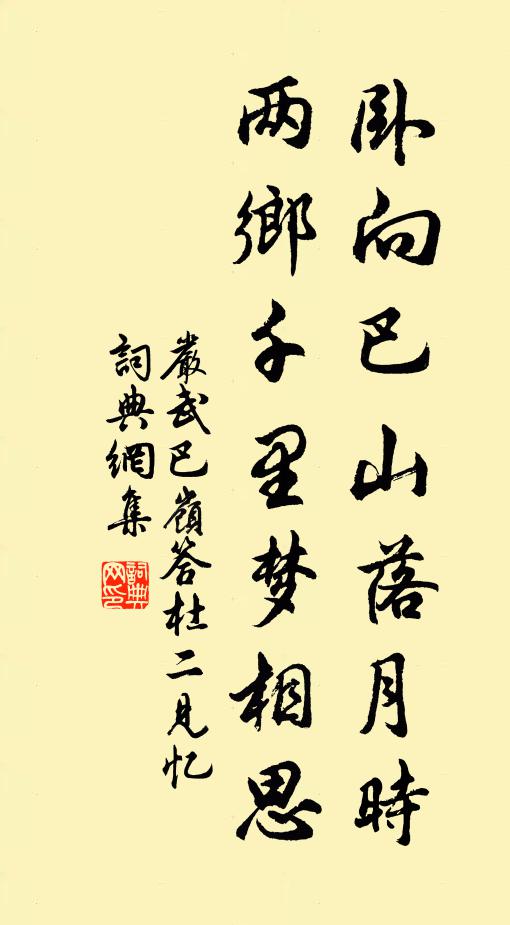 卧向巴山落月時
两鄉千里梦相思
嚴武巴嶺答杜二見忆
詞典網集
詞典網印